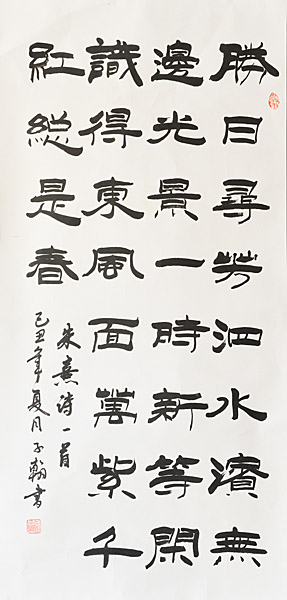 勝日尋芳泗水濱無
邊光景一時新等閑
識得東風面萬紫千
紅總是春
朱熹詩一首
己丑年夏月子翰書